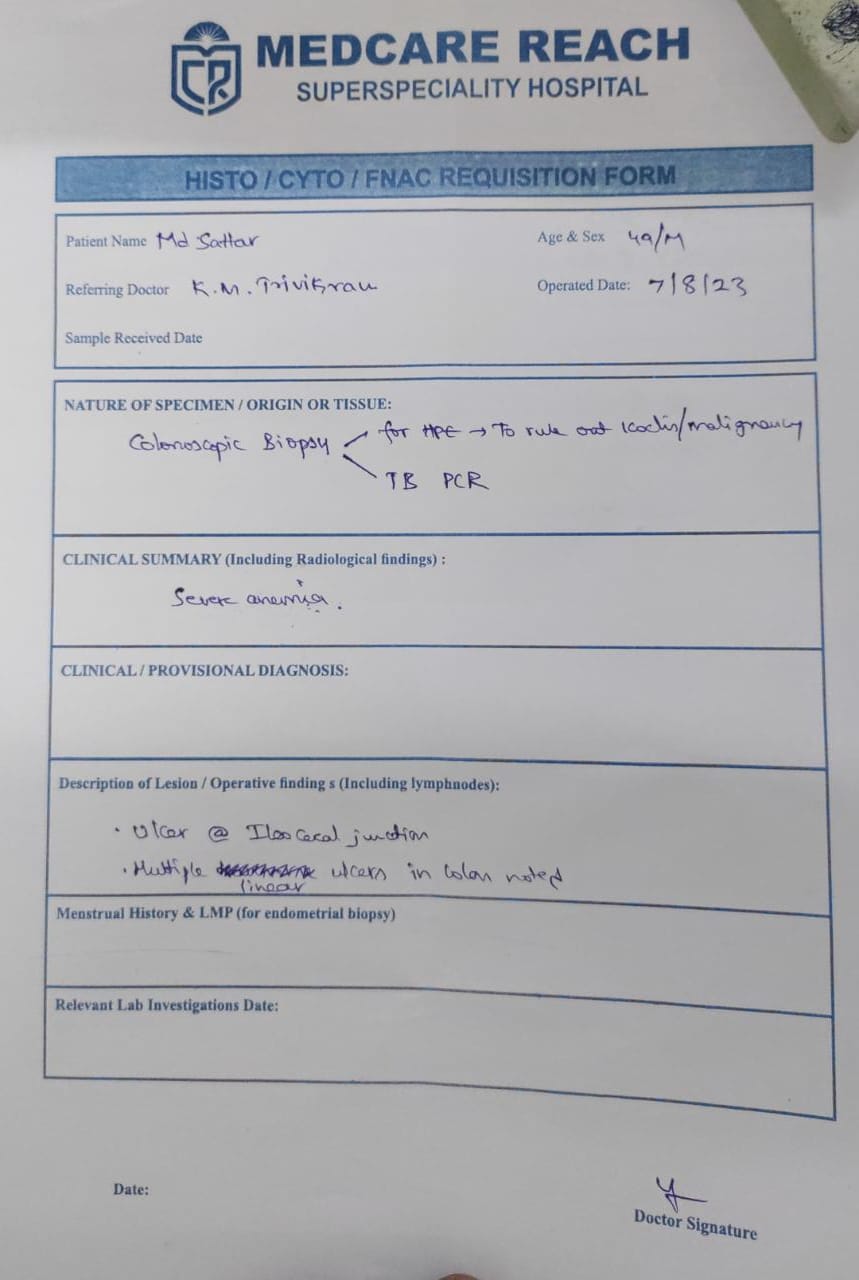 MEDCARE REACH
SUPERSPECIALITY HOSPITAL
HISTO / CYTO / FNAC REQUISITION FORM
Patient Name Md Sattar Age & Sex 49/M
Referring Doctor K.M. Trivikram Operated Date: 7/8/23
Sample Received Date
NATURE OF SPECIMEN / ORIGIN OR TISSUE:
Colonoscopic Biopsy for HPE → To rule out Kochs/malignancy
TB PCR
CLINICAL SUMMARY (Including Radiological findings) :
Severe anemia.
CLINICAL / PROVISIONAL DIAGNOSIS:
Description of Lesion / Operative finding s (Including lymphnodes):
• Ulcer @ Ileo Cecal junction
• Multiple linear ulcers in colon noted
Menstrual History & LMP (for endometrial biopsy)
Relevant Lab Investigations Date:
Date:
Doctor Signature